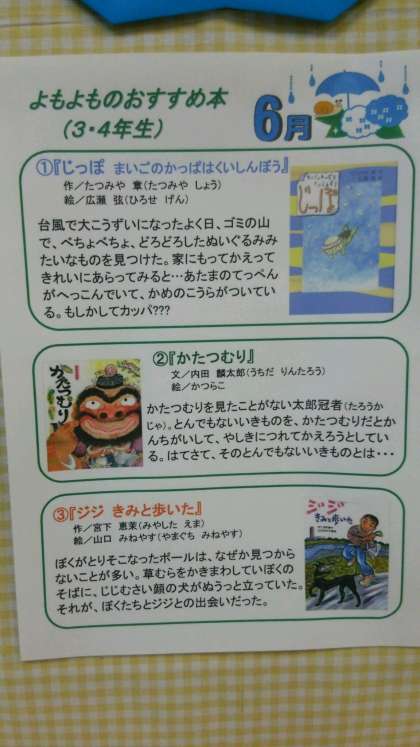 よもよものおすすめ本
(3・4年生)
6月
①『じっぽ まいごのかっぱはくいしんぼう』
作/たつみや 章(たつみや しょう)
絵/広瀬 弦(ひろせ げん)
台風で大こうずいになったよく日、ゴミの山
で、べちょべちょ、どろどろしたぬいぐるみみ
たいなものを見つけた。家にもってかえって
きれいにあらってみると…あたまのてっぺん
がへっこんでいて、かめのこうらがついてい
る。もしかしてカッパ???
じっぽ
②『かたつむり』
文/内田 麟太郎(うちだ りんたろう)
絵/かつらこ
かたつむりを見たことがない太郎冠者(たろうか
じゃ)。とんでもないいきものを、かたつむりだとか
んちがいして、やしきにつれてかえろうとしてい
る。はてさて、そのとんでもないいきものとは・・・
かたつむり
③『ジジ きみと歩いた』
作/宮下 恵茉(みやした えま)
絵/山口 みねやす(やまぐち みねやす)
ぼくがとりそこなったボールは、なぜか見つから
ないことが多い。草むらをかきまわしていぼくの
そばに、じじむさい顔の犬がぬうっと立っていた。
それが、ぼくたちとジジとの出会いだった。
ジジ
きみと歩いた